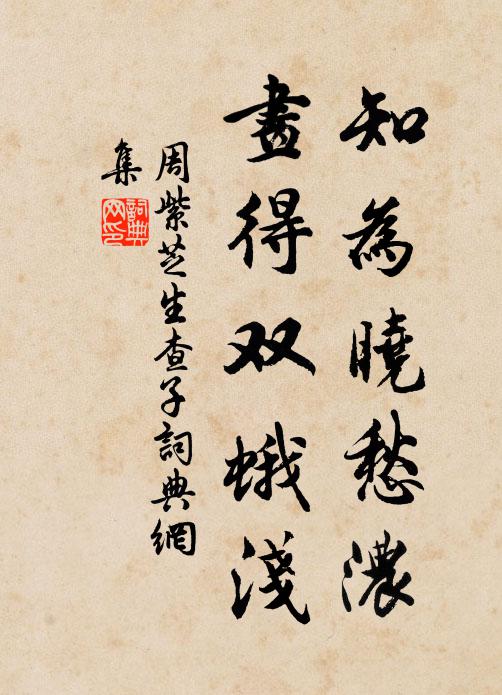 知為曉愁濃
畫得双蛾淺
周紫芝生查子詞典網
集
詞典
网印